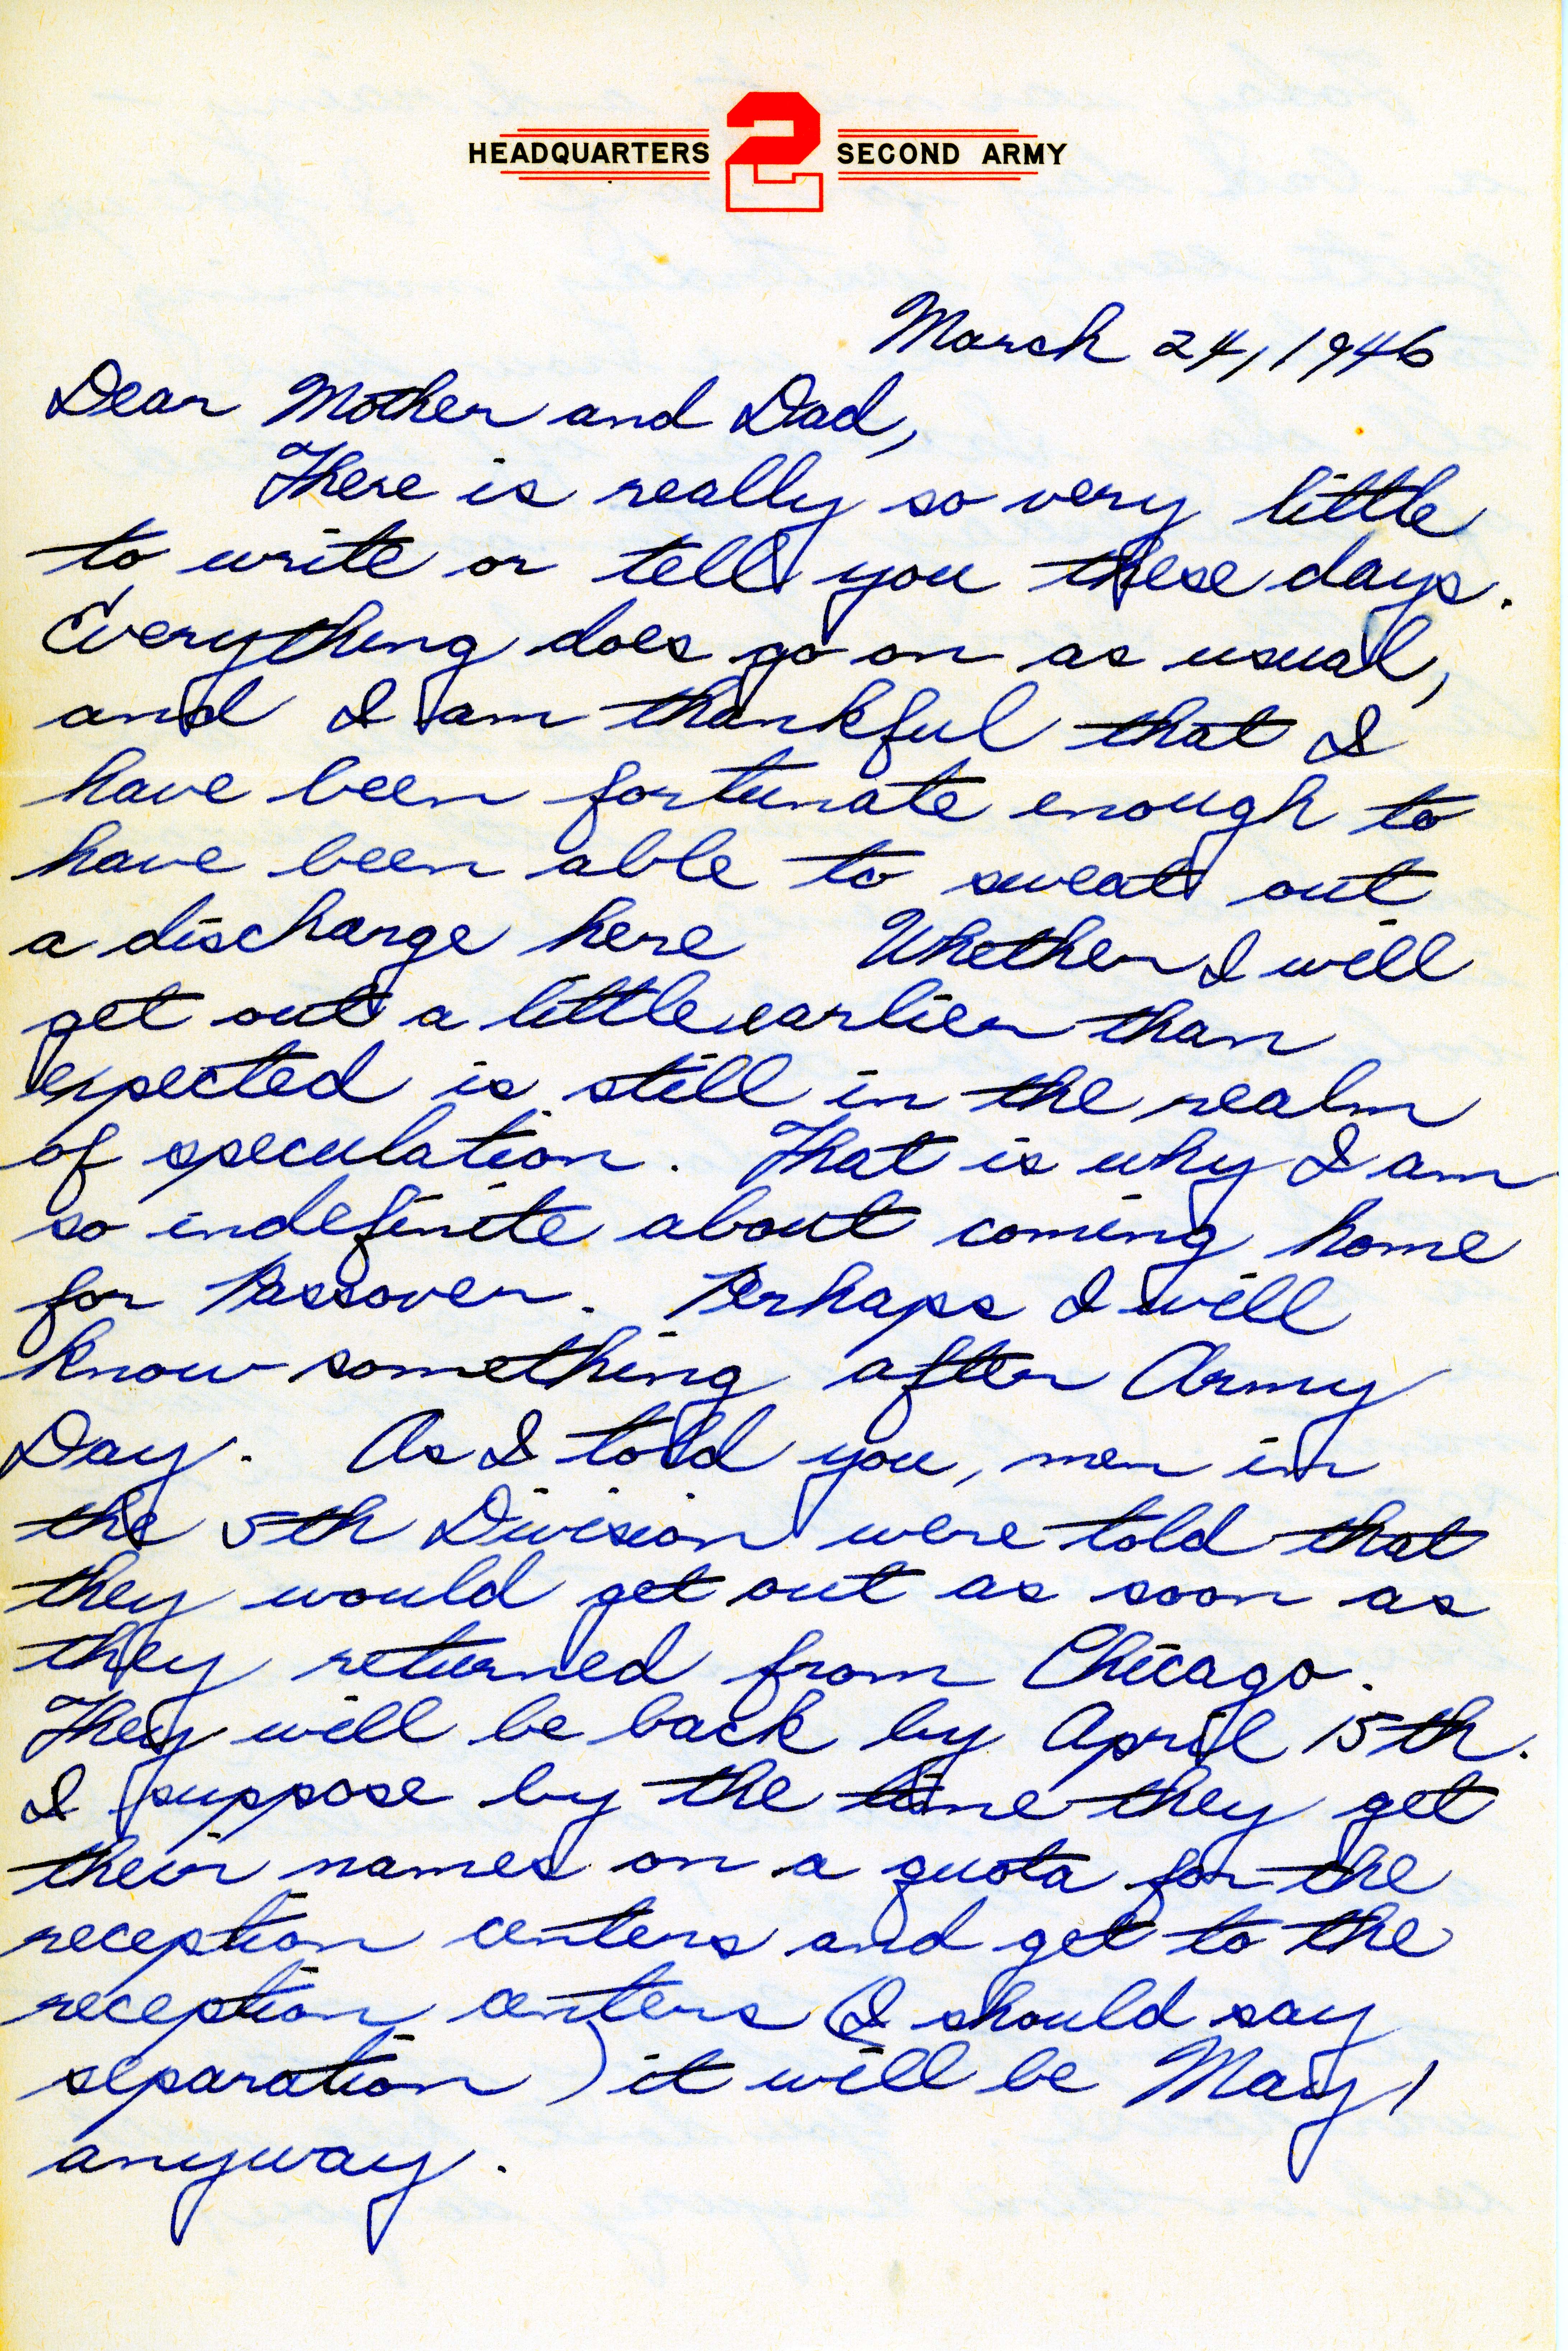 HEADQUARTERS 2 SECOND ARMY
March 24, 1946
Dear Mother and Dad,
There is really so very little
to write or tell you these days.
Everything does go on as usual,
and I am thankful that I
have been fortunate enough to
have been able to sweat out
a discharge here Whether I will
get out a little earlier than
expected is still in the realm
of speculation. That is why I am
so indefinite about coming home
for Passover. Perhaps I will
know something after Army
Day. As I told you, men in
the 5th Division were told that
they would get out as soon as
they returned from Chicago.
They will be back by April 15th.
I suppose by the time they get
their names on a quota for the
reception centers and get to the
reception centers (I should say
separation) it will be May 1
anyway.